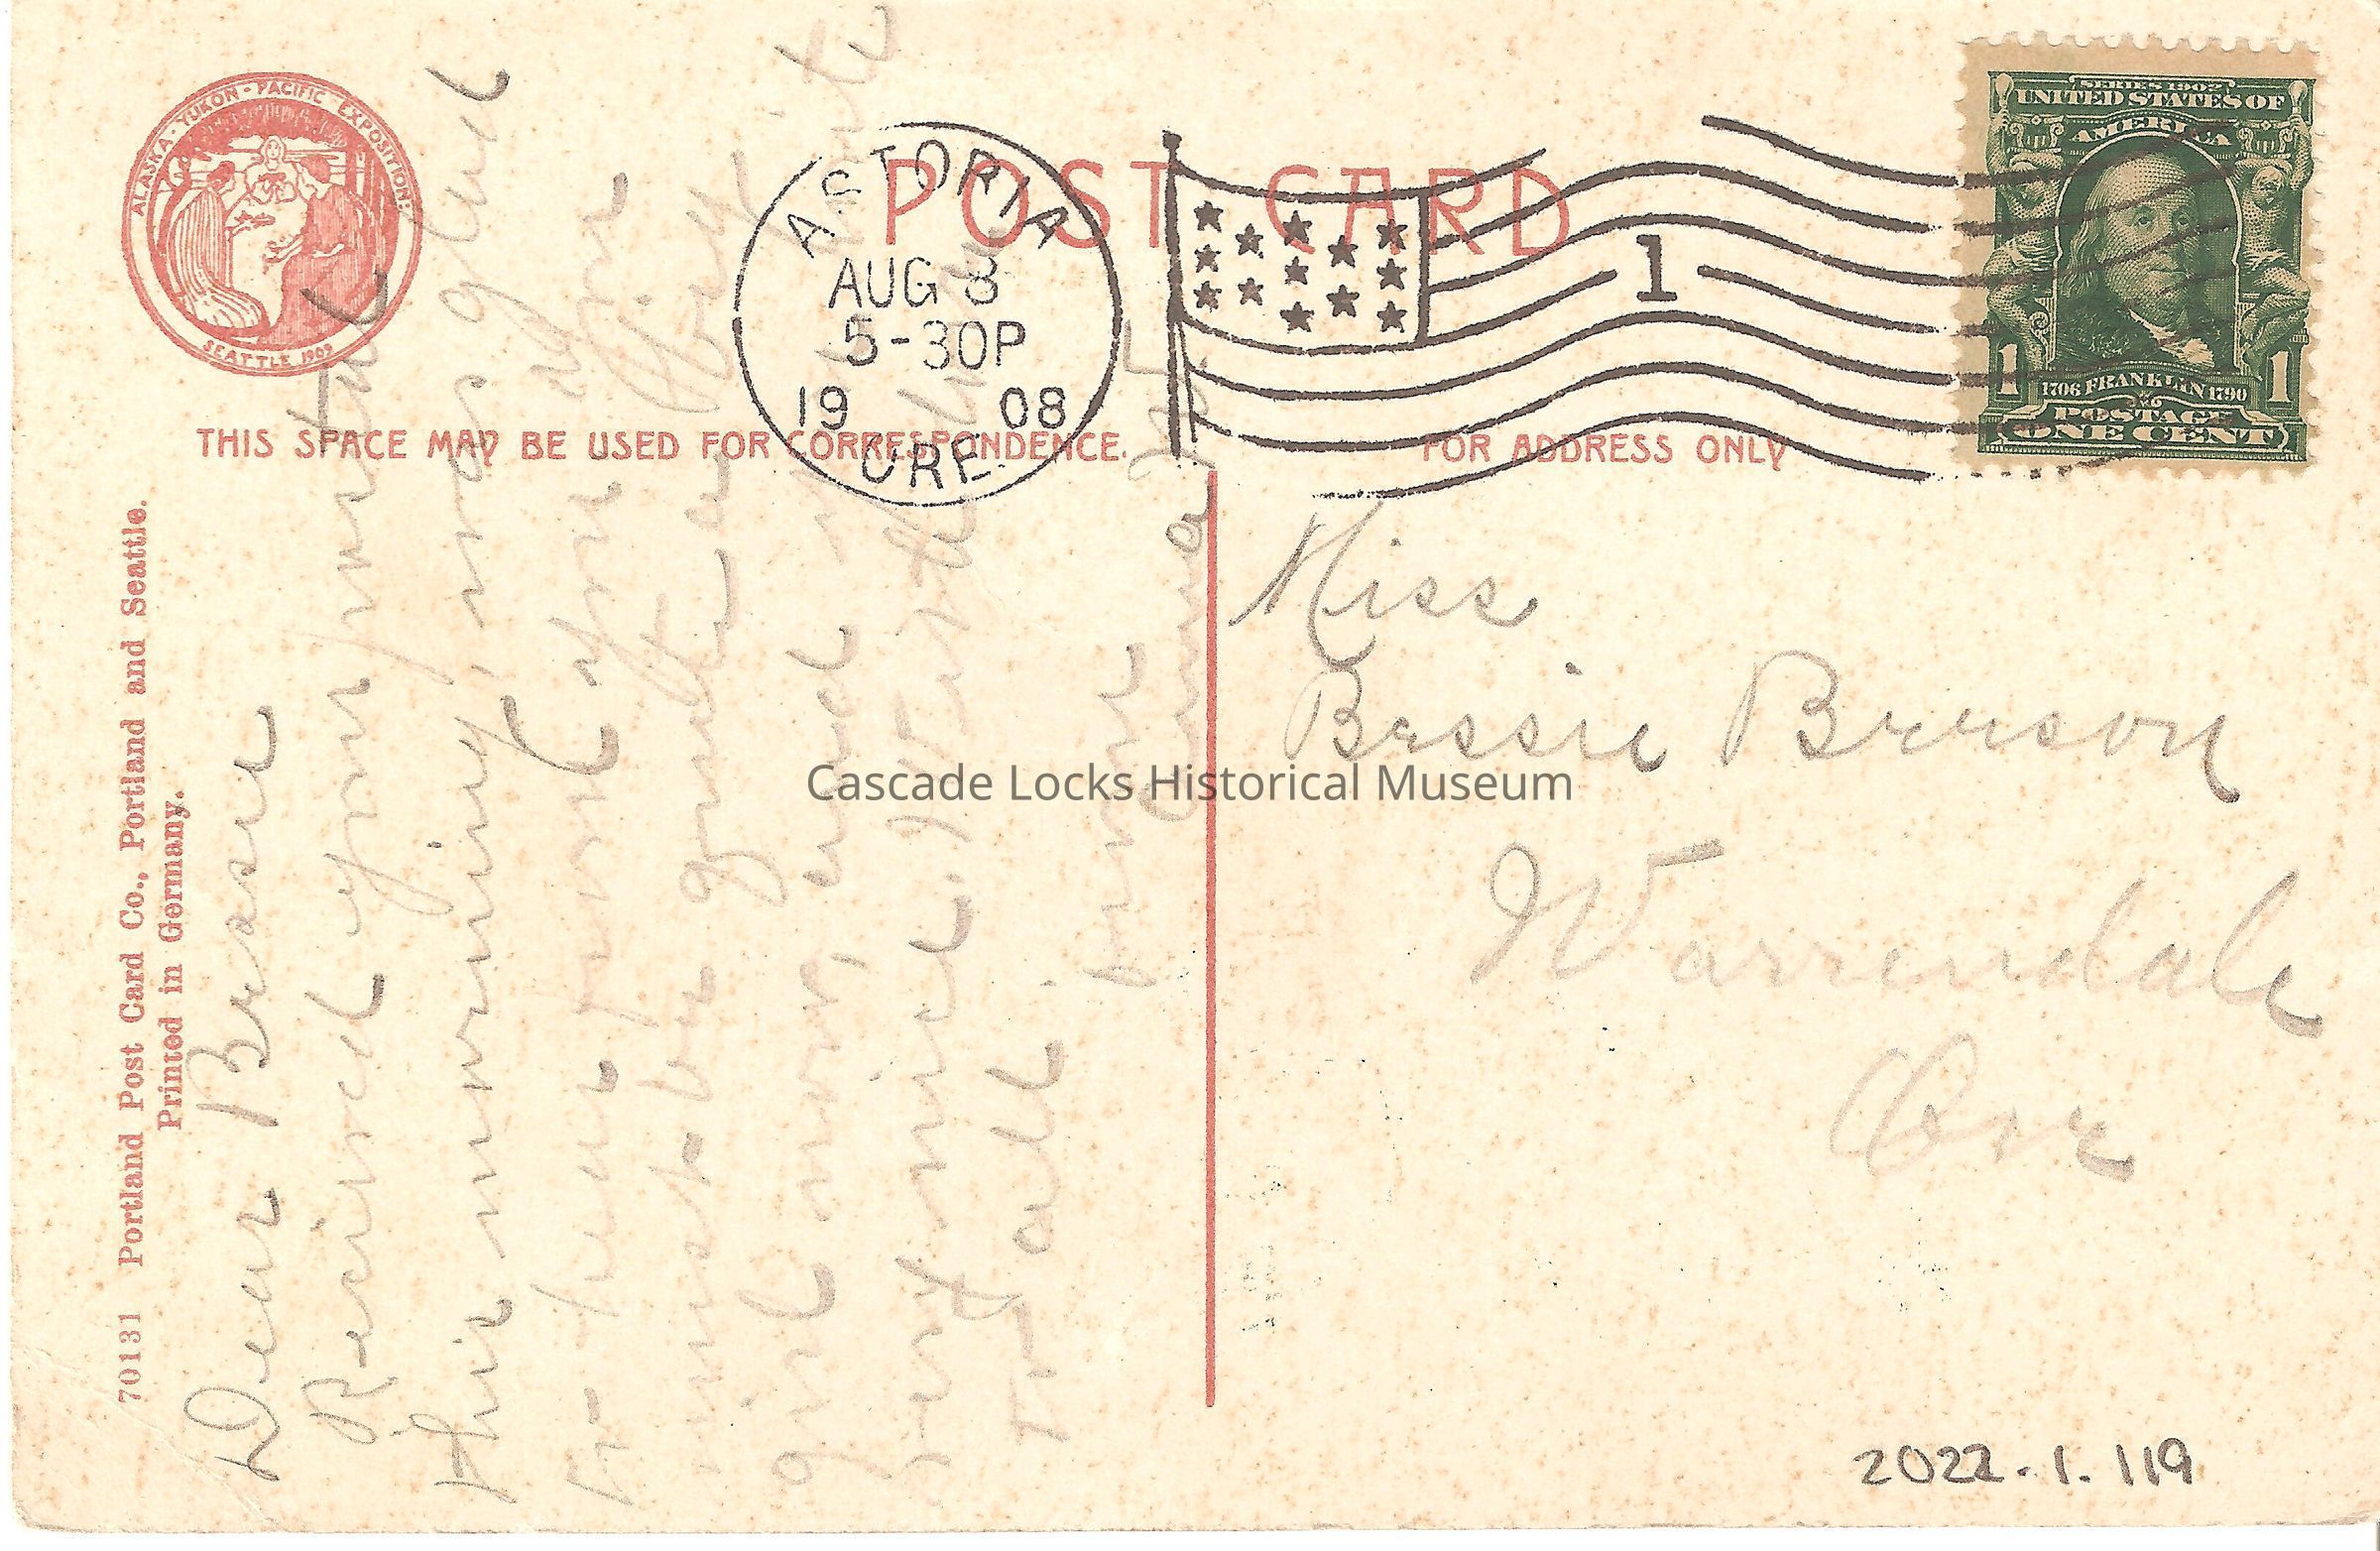 ALASKA·YUKON·PACIFIC EXPOSITION:
SEATTLE 1909
POST CARD
ASTORIA
AUG 8
5-30P
1908
ORE.
1
SERIES 1902
UNITED STATES OF
AMERICA
1706 FRANKLIN 1790
1 1
POSTAGE
ONE CENT
THIS SPACE MAY BE USED FOR CORRESPONDENCE.
FOR ADDRESS ONLY
70131 Portland Post Card Co., Portland and Seattle.
Printed in Germany.
Dear Bessie
Recieved your postal
this morning, was glad
to hear from you you
must be
girl now, and
very nice. Write
To all.
from
Anna
Miss
Bessie Breson
Warrendale
Ore
Cascade Locks Historical Museum
2022.1.119